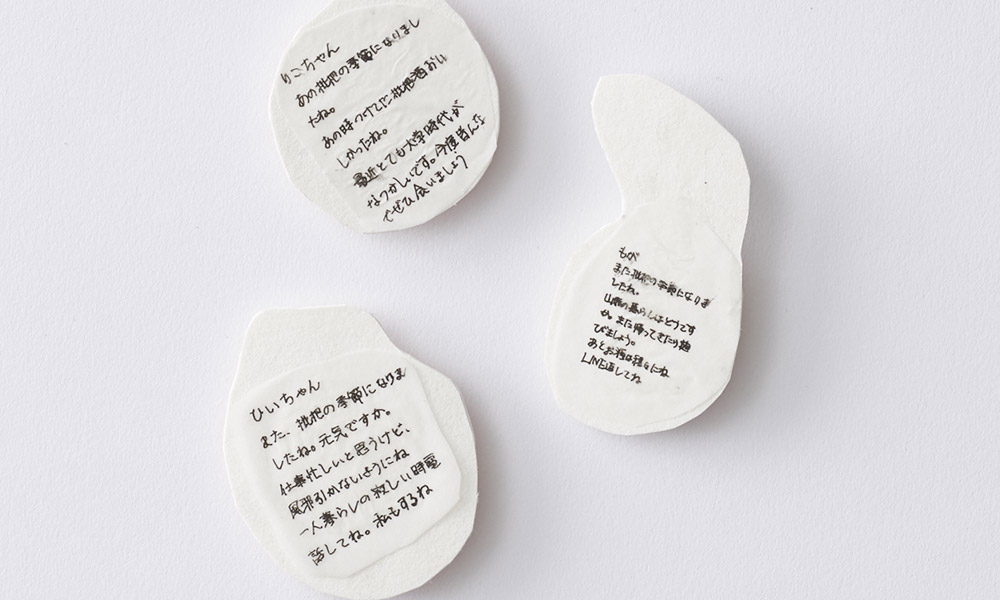 りこちゃん
あの枇杷の季節になりまし
たね。
あの時つけてた枇杷酒おい
しかったね。
最近とても大学時代が
なつかしいです。今度皆んな
でぜひ会いましょう
もが
また枇杷の季節になりま
したね。
山梨の暮らしはどうです
か。また帰ってきたら遊
びましょう。
あとお酒は程々にね
LINE返してね
ひいちゃん
また、枇杷の季節になりま
したね。元気ですか。
仕事忙しいと思うけど、
風邪引かないようにね
一人暮らしの寂しい時電
話してね。私もするね